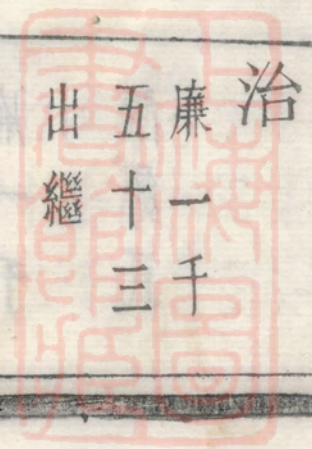 治
廉一千
五十三
出繼